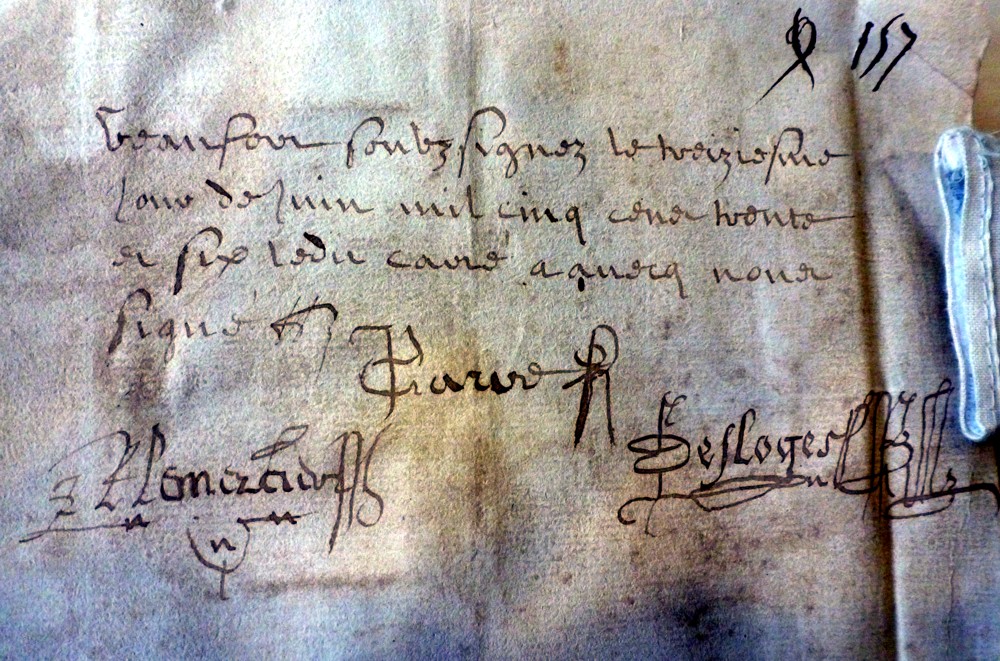 157
Beaufort soubzsignez le treiziesme
Jour de Juin mil cinq cent trente
et six ledit carré a avecq nous
signé
Carré
Lemercier
Desloges